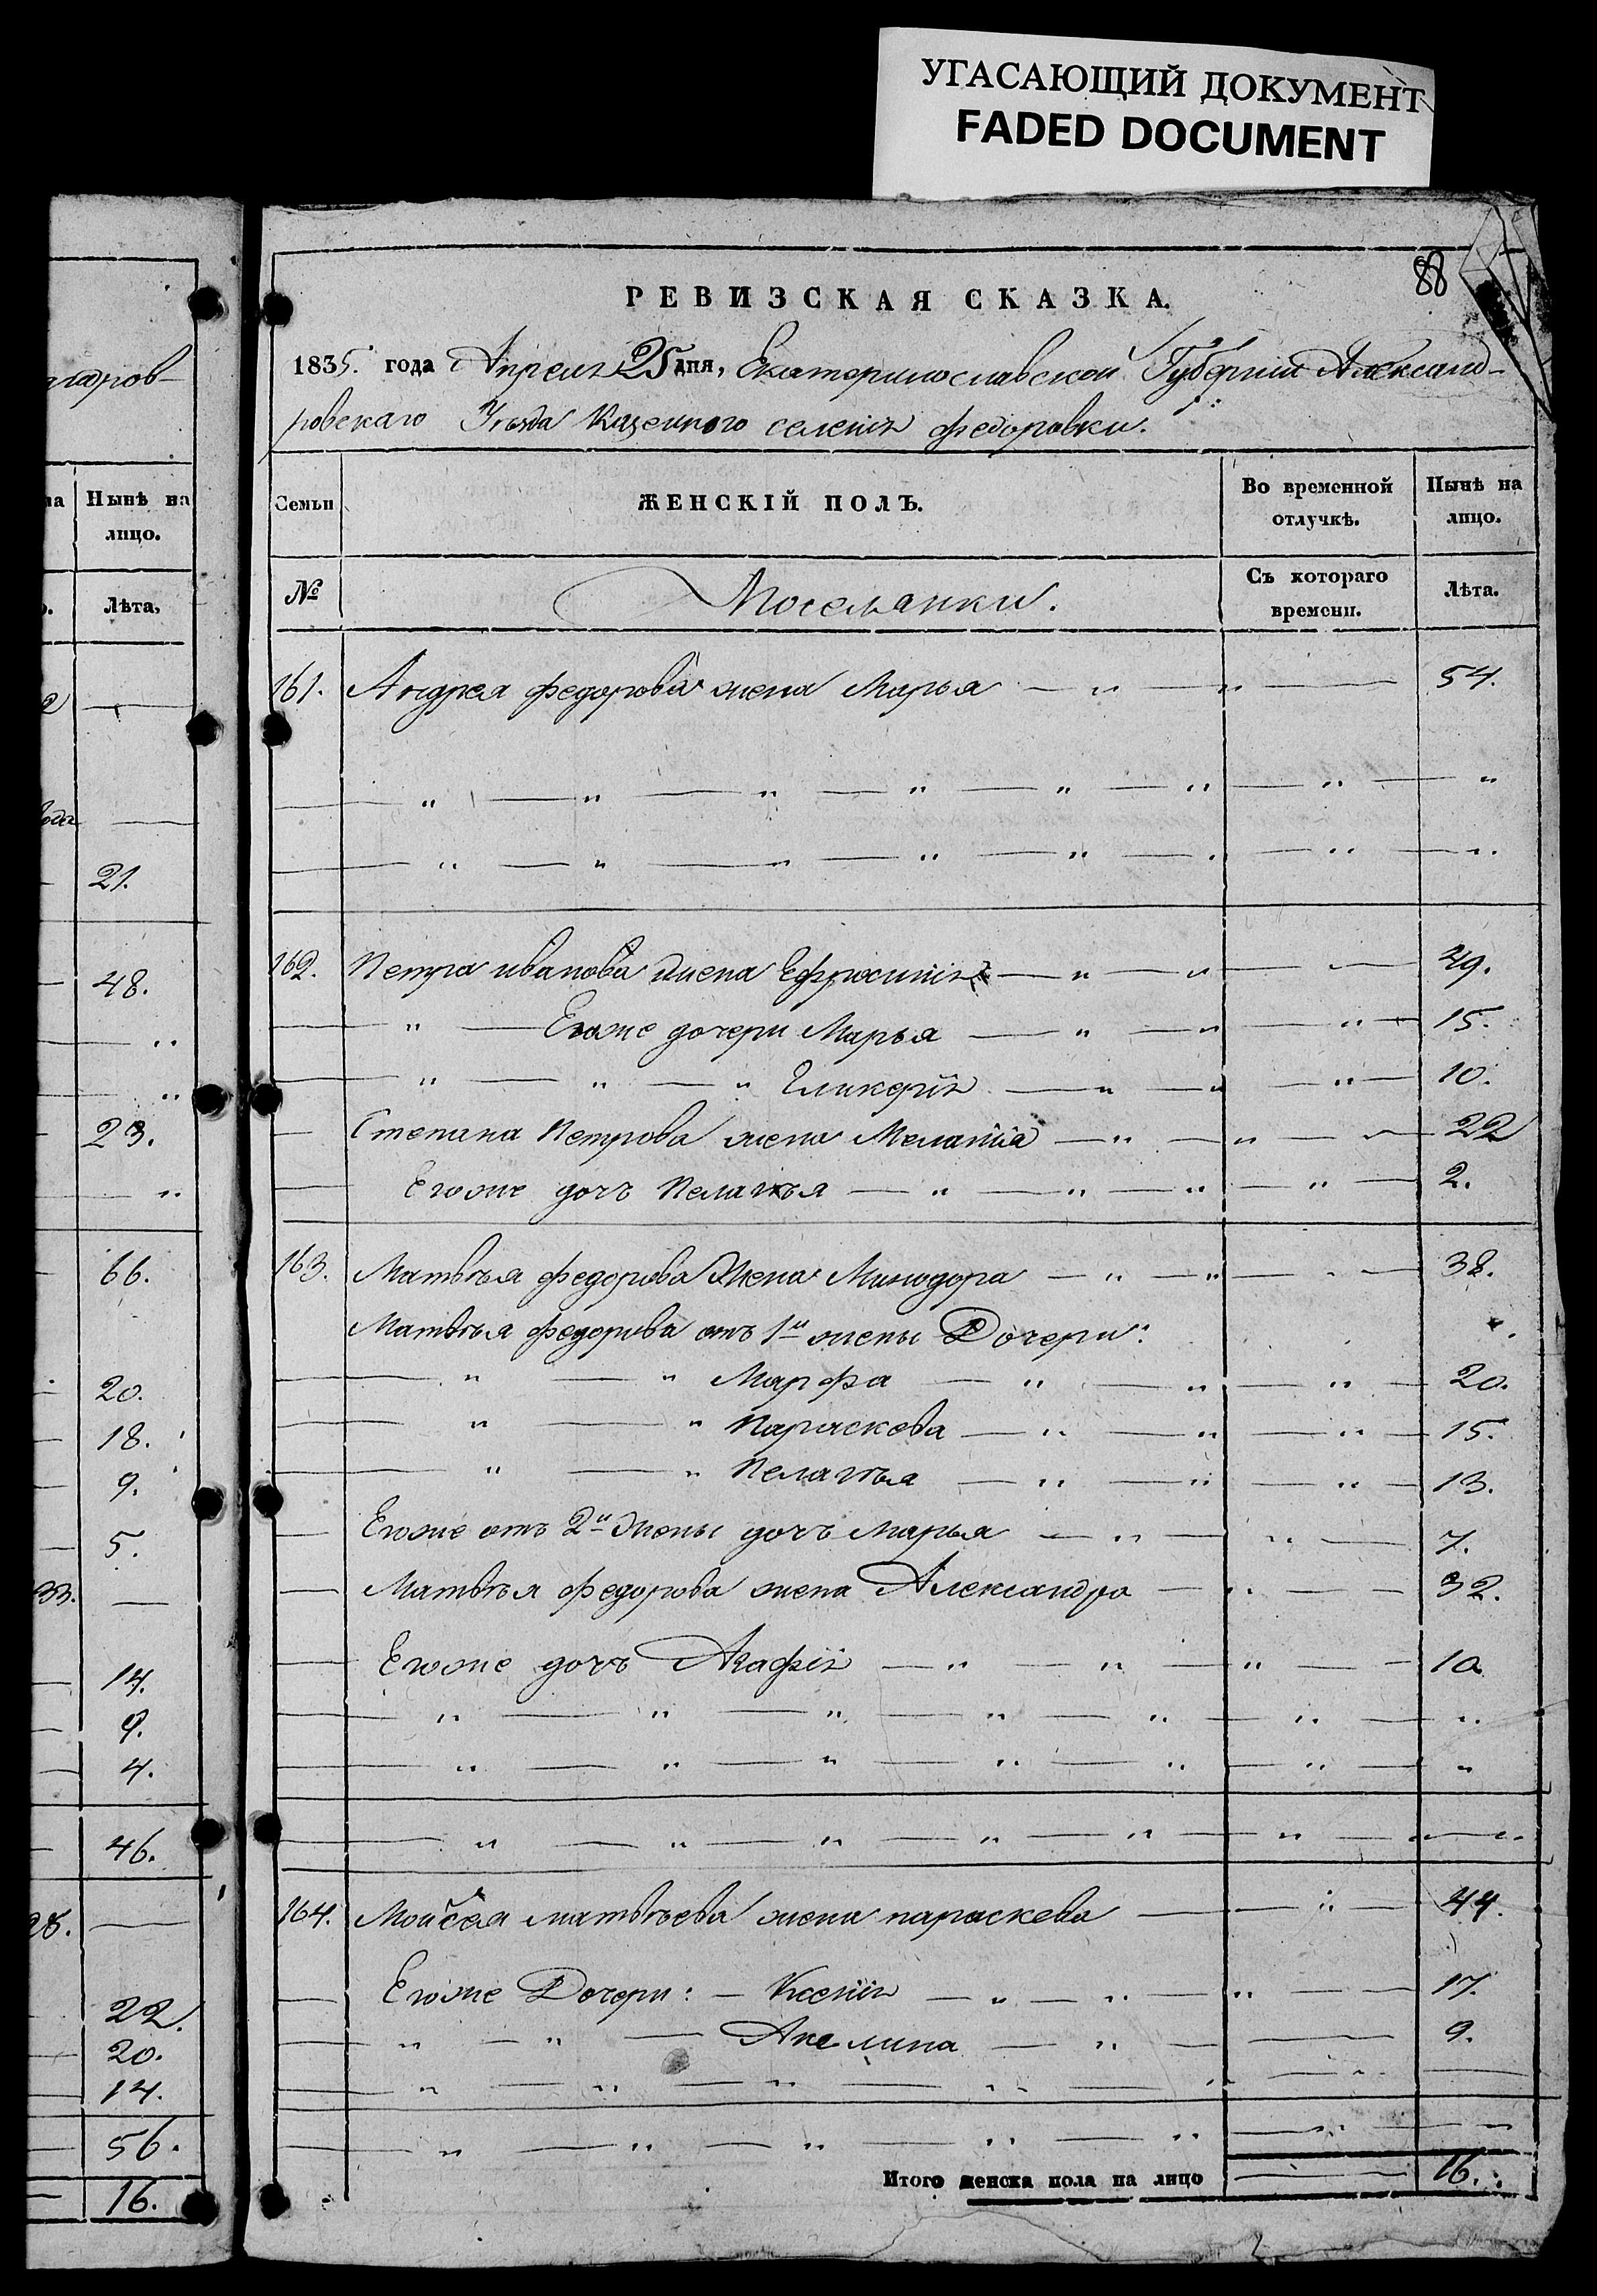 УГАСАЮЩИЙ ДОКУМЕНТ
FADED DOCUMENT
88
РЕВИЗСКАЯ СКАЗКА.
1835. года Апреля 25 дня, Екатеринославской Губернии Александ-
ровскаго Уезда Казенного селения Федоровки.
Семьи
ЖЕНСКІЙ ПОЛЪ.
Во временной отлучкѣ.
Нынѣ на лицо.
№
Поселянки.
Съ котораго времени.
Лѣта.
161. Андрея федорова жена Марья — " — " — 54.
— " — " — " — " — " — " — " — "
— " — " — " — " — " — " — " — "
162. Петра иванова жена Ефросинія — " — " — 49.
— " — Егоже дочери Марья — " — " — " — 15.
— " — " — " Гликерія — " — " — " — 10.
— Степана Петрова жена Меланія — " — " — 22
— Егоже дочь Пелагья — " — " — " — " — 2.
163. Матвѣя федорова Жена Минодора — " — " — 38.
Матвѣя федорова отъ 1й жены Дочери:
— " — " Марфа — " — " — " — 20.
— " — " Параскева — " — " — " — 15.
— " — " Пелагья — " — " — " — 13.
— Егоже отъ 2й Жены дочь Марья — " — " — 7.
— Матвѣя федорова жена Александра — " — 32.
— Егоже дочь Агафія — " — " — " — 10
— " — " — " — " — " — " — "
— " — " — " — " — " — " — "
— " — " — " — " — " — " — "
164. Мойсея матвѣева жена параскева — " — 44.
— Егоже Дочери: — Ксенія — " — " — " — 17.
— " — " — Акелина — " — 9.
— " — " — " — " — " — " —
— " — " — " — " — " — " — "
Итого женска пола на лицо — 16.
Нынѣ на
лицо.
Лѣта.
—
—
21.
48.
"
"
23.
"
66.
20.
18.
9.
5.
33. —
14.
9.
4.
46.
—
22.
20.
14.
56.
16.